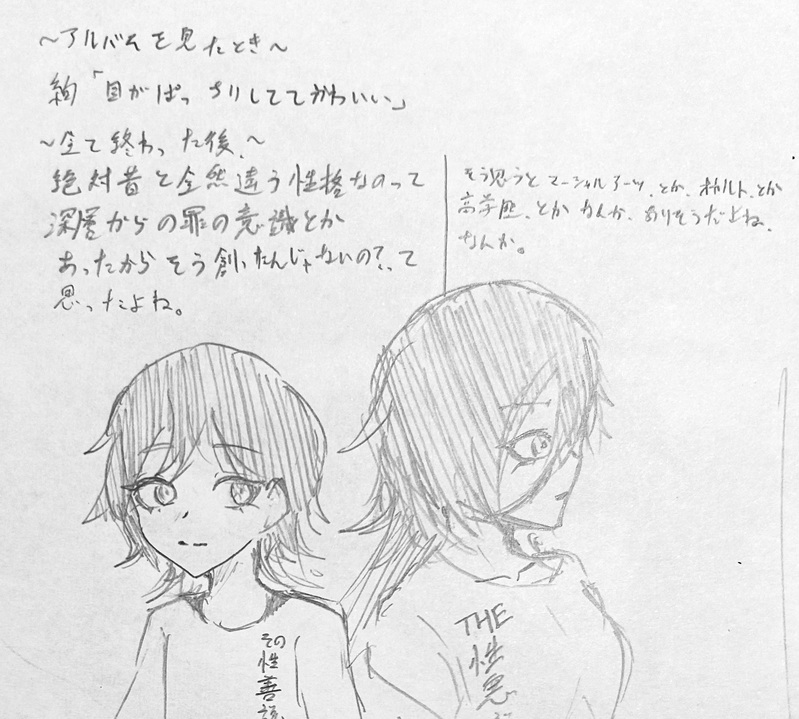 ～アルバムを見たとき～
絢「目がぱっちりしててかわいい」
～全て終わった後～
絶対昔と全然違う性格なのって
深層からの罪の意識とか
あったからそう創ったんじゃないの？って
思ったよね。
そう思うとマーシャルアーツ、とか、オカルト、とか
高学歴、とかなんか、ありそうだよね、
なんか。
その性善説
THE
性悪